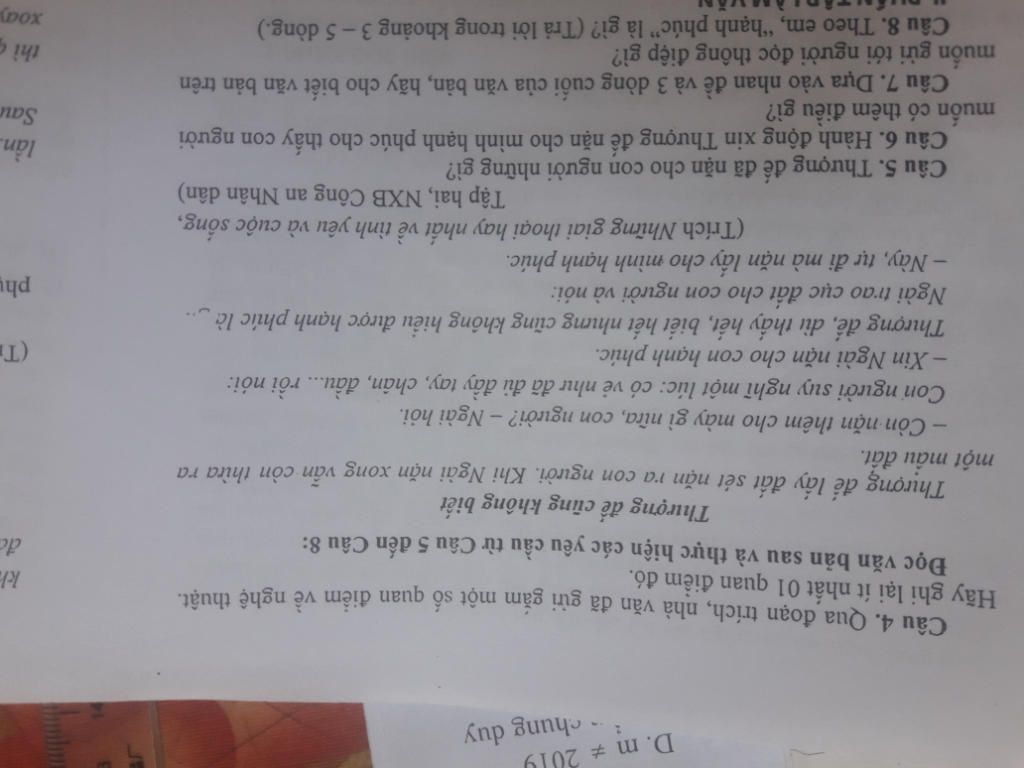 Câu 4. Qua đoạn trích, nhà văn đã gửi gắm một số quan điểm về nghệ thuật.
Hãy ghi lại ít nhất 01 quan điểm đó.
Đọc văn bản sau và thực hiện các yêu cầu từ Câu 5 đến Câu 8:
Thượng đế cũng không biết
Thượng đế lấy đất sét nặn ra con người. Khi Ngài nặn xong vẫn còn thừa ra
một mẩu đất.
– Còn nặn thêm cho mày gì nữa, con người? – Ngài hỏi.
Con người suy nghĩ một lúc: có vẻ như đã đủ đầy tay, chân, đầu... rồi nói:
– Xin Ngài nặn cho con hạnh phúc.
Thượng đế, dù thấy hết, biết hết nhưng cũng không hiểu được hạnh phúc là
Ngài trao cục đất cho con người và nói:
– Này, tự đi mà nặn lấy cho mình hạnh phúc.
(Trích Những giai thoại hay nhất về tình yêu và cuộc sống,
Tập hai, NXB Công an Nhân dân)
Câu 5. Thượng đế đã nặn cho con người những gì?
Câu 6. Hành động xin Thượng đế nặn cho mình hạnh phúc cho thấy con người
muốn có thêm điều gì?
Câu 7. Dựa vào nhan đề và 3 dòng cuối của văn bản, hãy cho biết văn bản trên
muốn gửi tới người đọc thông điệp gì?
Câu 8. Theo em, “hạnh phúc” là gì? (Trả lời trong khoảng 3 – 5 dòng.)
D. m ≠ 2019
chung duy
(T
lần.
Sau
thì
xoay